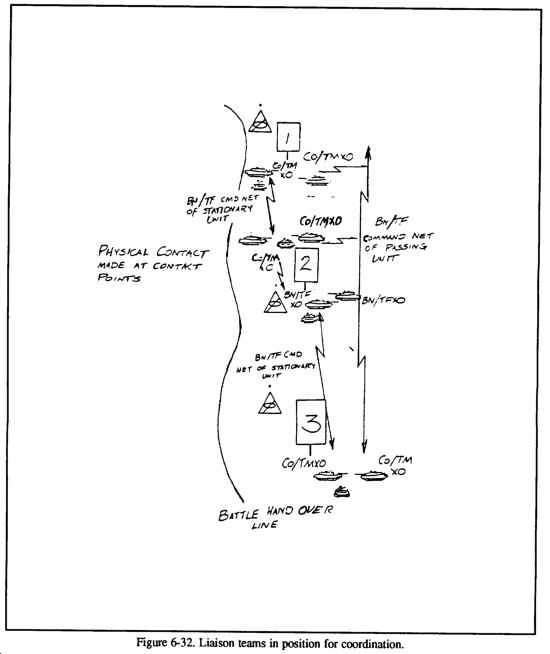 1
CO/TM
XO
CO/TMXO
BN/TF CMD NET
OF STATIONARY
UNIT
CO/TMXO
BN/TF
COMMAND NET
OF PASSING
UNIT
PHYSICAL CONTACT
MADE AT CONTACT
POINTS
CO/TM
2
BN/TF
XO
BN/TFXO
BN/TF CMD
NET OF STATIONARY
UNIT
3
CO/TMXO
CO/TM
XO
BATTLE HAND OVER
LINE
Figure 6-32. Liaison teams in position for coordination.